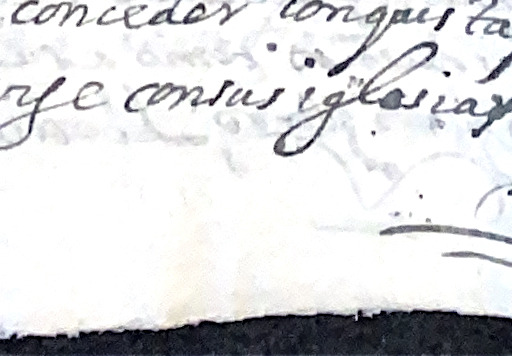 conceder conquista
rge con sus iglesias